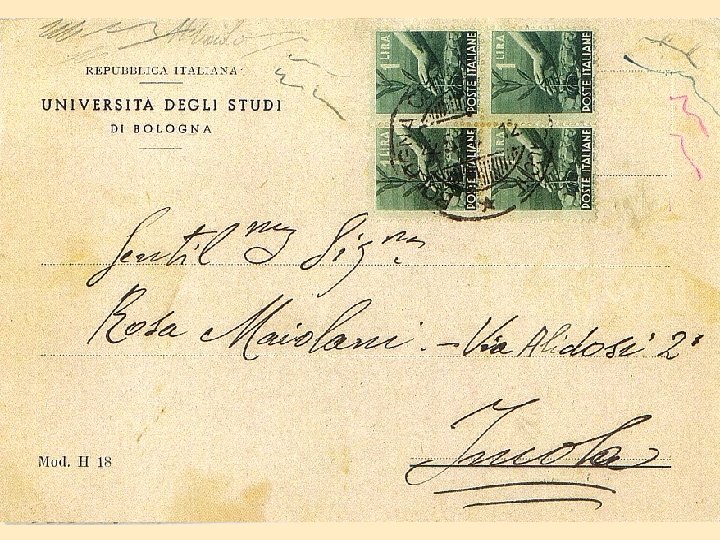 REPUBBLICA ITALIANA
UNIVERSITA DEGLI STUDI
DI BOLOGNA
1 LIRA POSTE ITALIANE
1 LIRA POSTE ITALIANE
1 LIRA POSTE ITALIANE
1 LIRA POSTE ITALIANE
BOLOGNA
Gentil ma Sig na
Rosa Maiolani - Via Alidosi 2
Imola
Mod. H 18